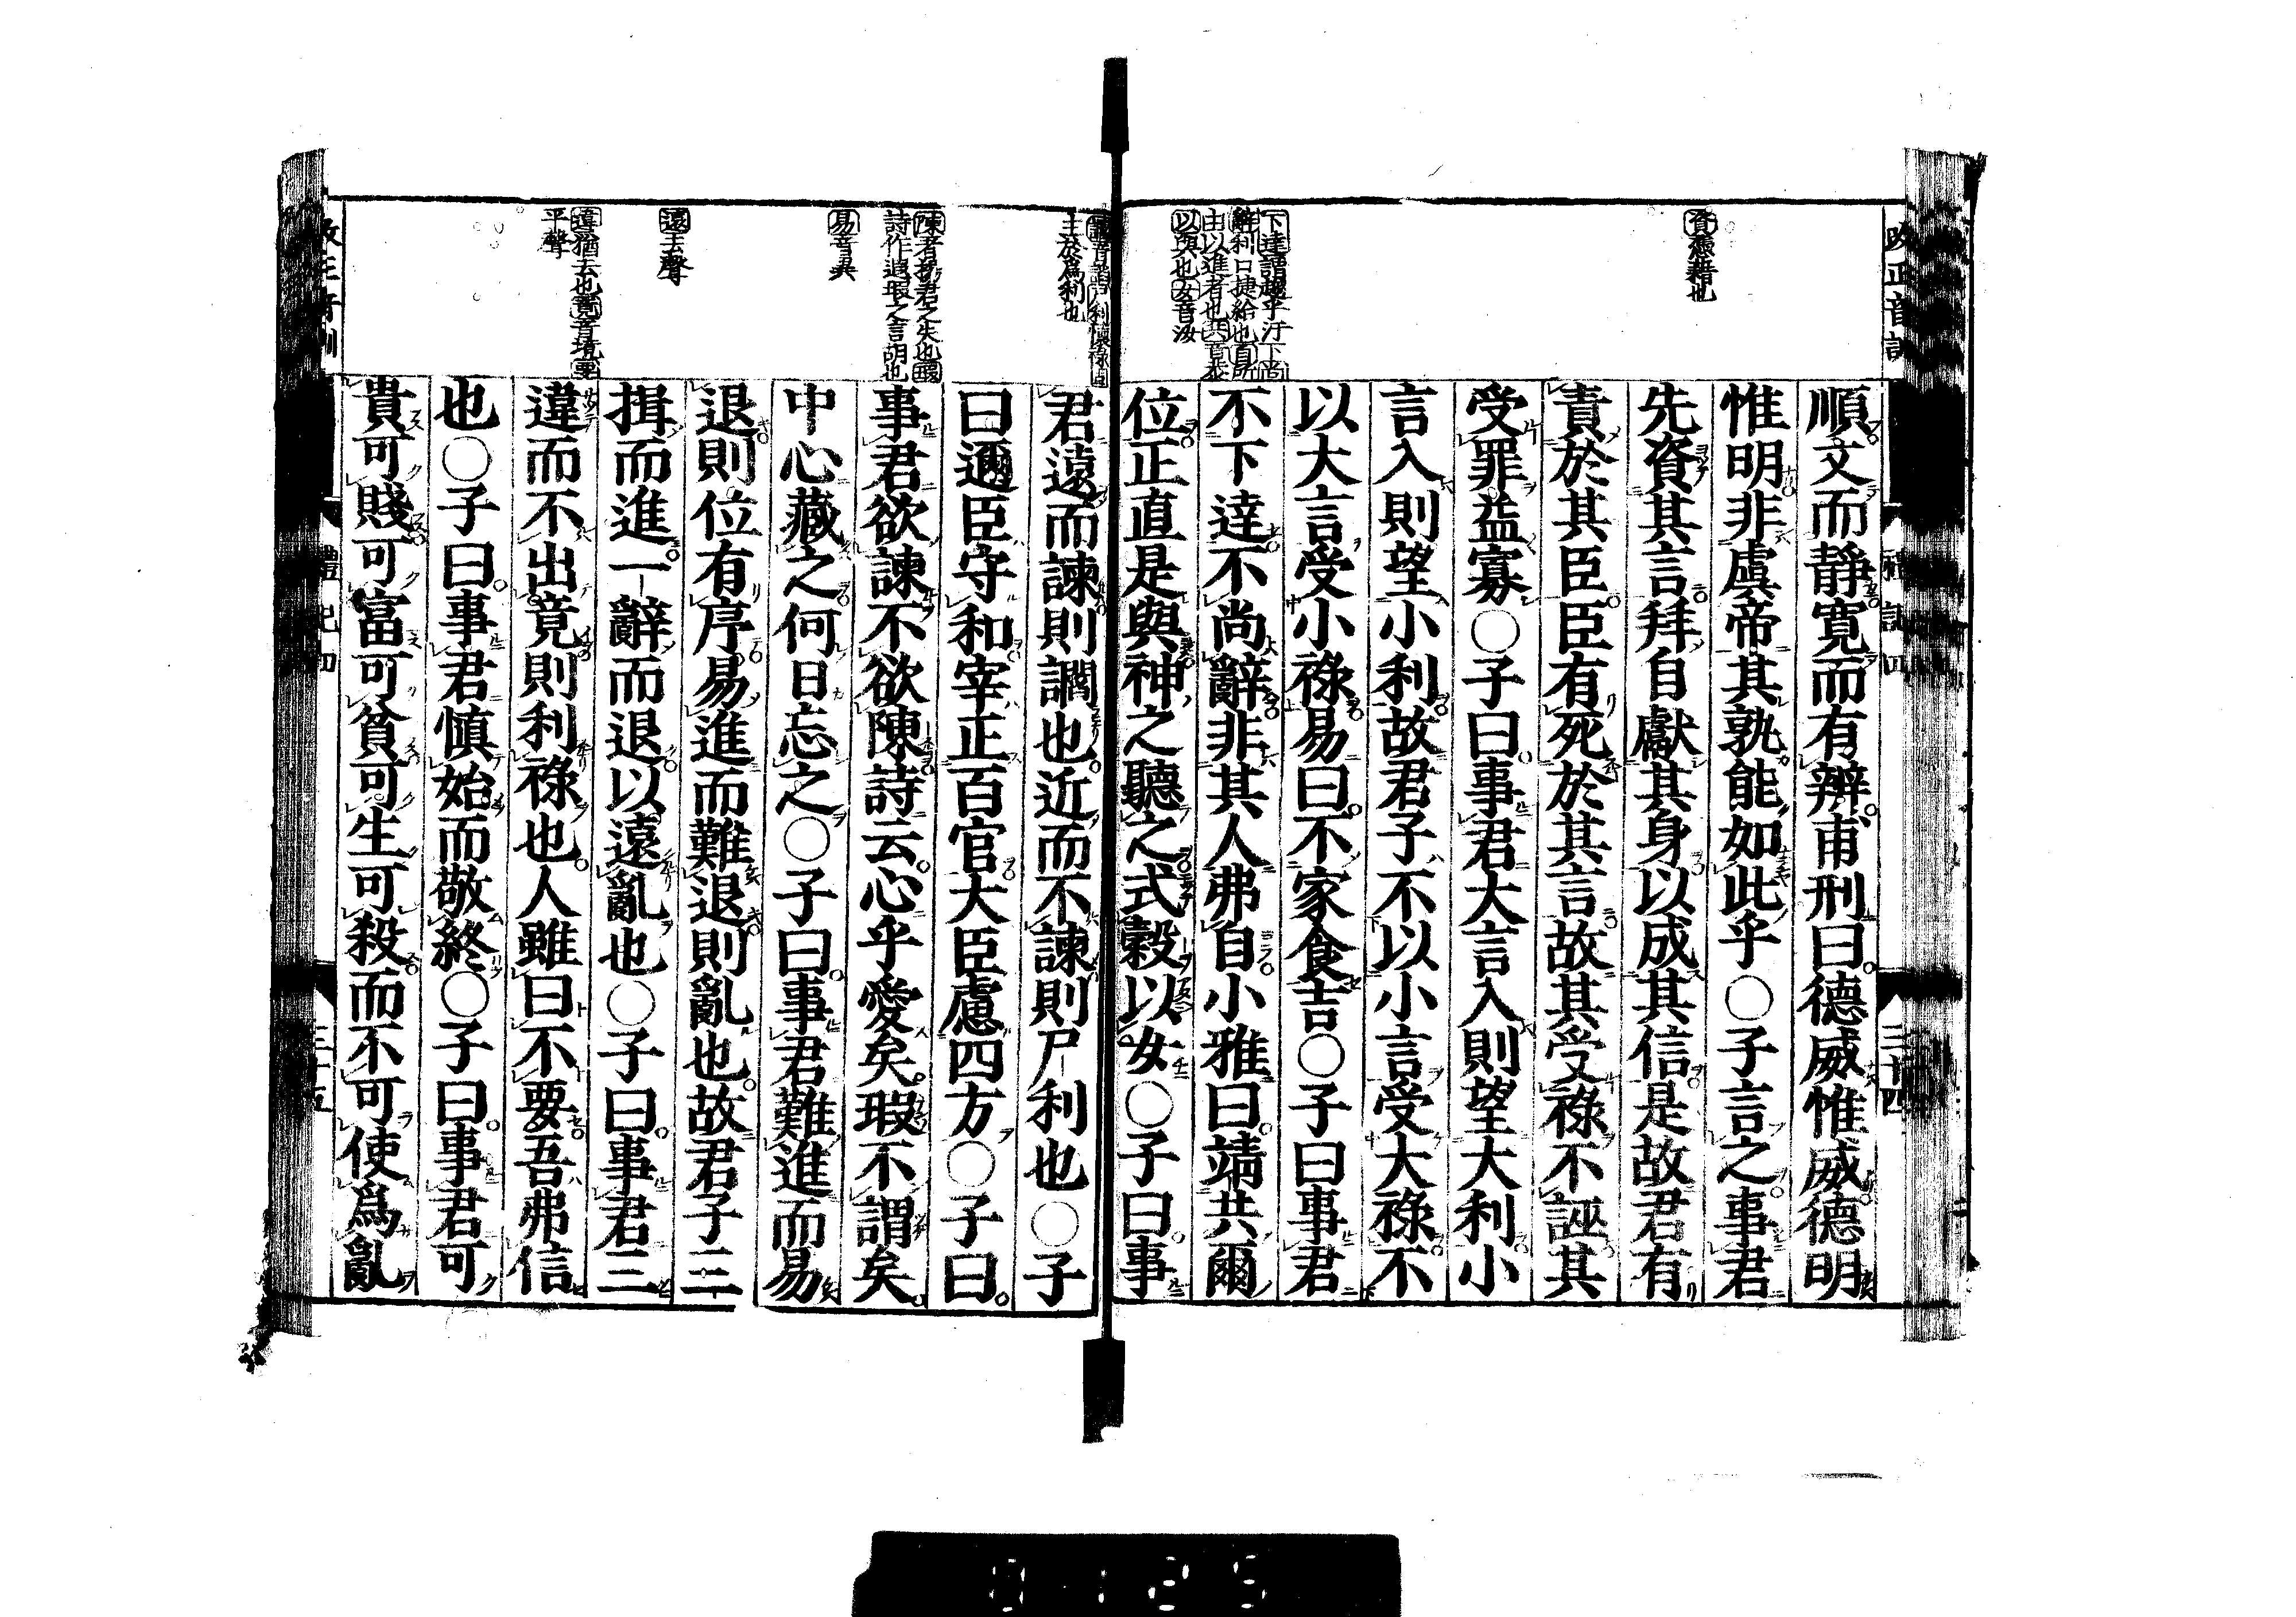 資憑藉也
下達謂趨乎汙下尚
辭利口捷給也直所
由以進者也共音恭
以與也女音汝
順文而靜寬而有辨甫刑曰德威惟威德明
惟明非虞帝其孰能如此乎○子言之事君
先資其言拜自獻其身以成其信是故君有
責於其臣臣有死於其言故其受祿不誣其
受罪益寡○子曰事君大言入則望大利小
言入則望小利故君子不以小言受大祿不
以大言受小祿易曰不家食吉○子曰事君
不下達不尚辭非其人弗自小雅曰靖共爾
位正直是與神之聽之式穀以女○子曰事
主於爲利也
陳者揚君之失也瑕
詩作遐瑕之言胡也
易音異
遠去聲
違猶去也竟音境要
平聲
君遠而諫則讇也近而不諫則尸利也○子
曰邇臣守和宰正百官大臣慮四方○子曰
事君欲諫不欲陳詩云心乎愛矣瑕不謂矣
中心藏之何日忘之○子曰事君難進而易
退則位有序易進而難退則亂也故君子三
揖而進一辭而退以遠亂也○子曰事君三
違而不出竟則利祿也人雖曰不要吾弗信
也○子曰事君慎始而敬終○子曰事君可
貴可賤可富可貧可生可殺而不可使爲亂